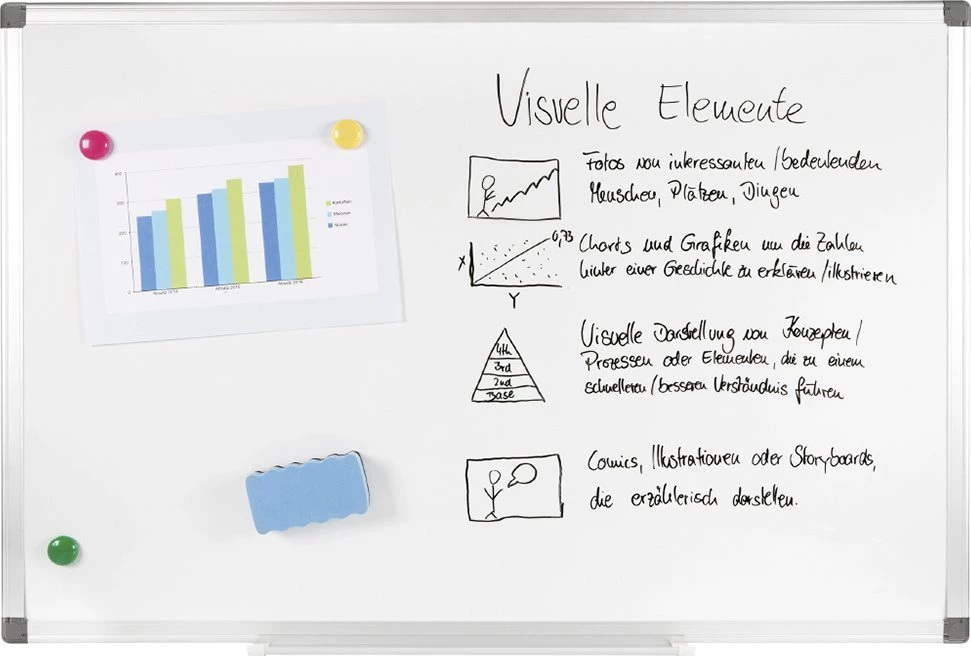 Visuelle Elemente
Fotos von interessanten/bedeutenden
Menschen, Plätzen, Dingen
0,73
X
Y
Charts und Grafiken um die Zahlen
hinter einer Geschichte zu erklären/illustrieren
4th
3rd
2nd
Base
Visuelle Darstellung von Konzepten/
Prozessen oder Elementen, die zu einem
schnelleren/besseren Verständnis führen
Comics, Illustrationen oder Storyboards,
die erzählerisch darstellen.
400
300
200
100
0
Kartoffeln
Melonen
Absatz 2014
Absatz 2015
Absatz 2016